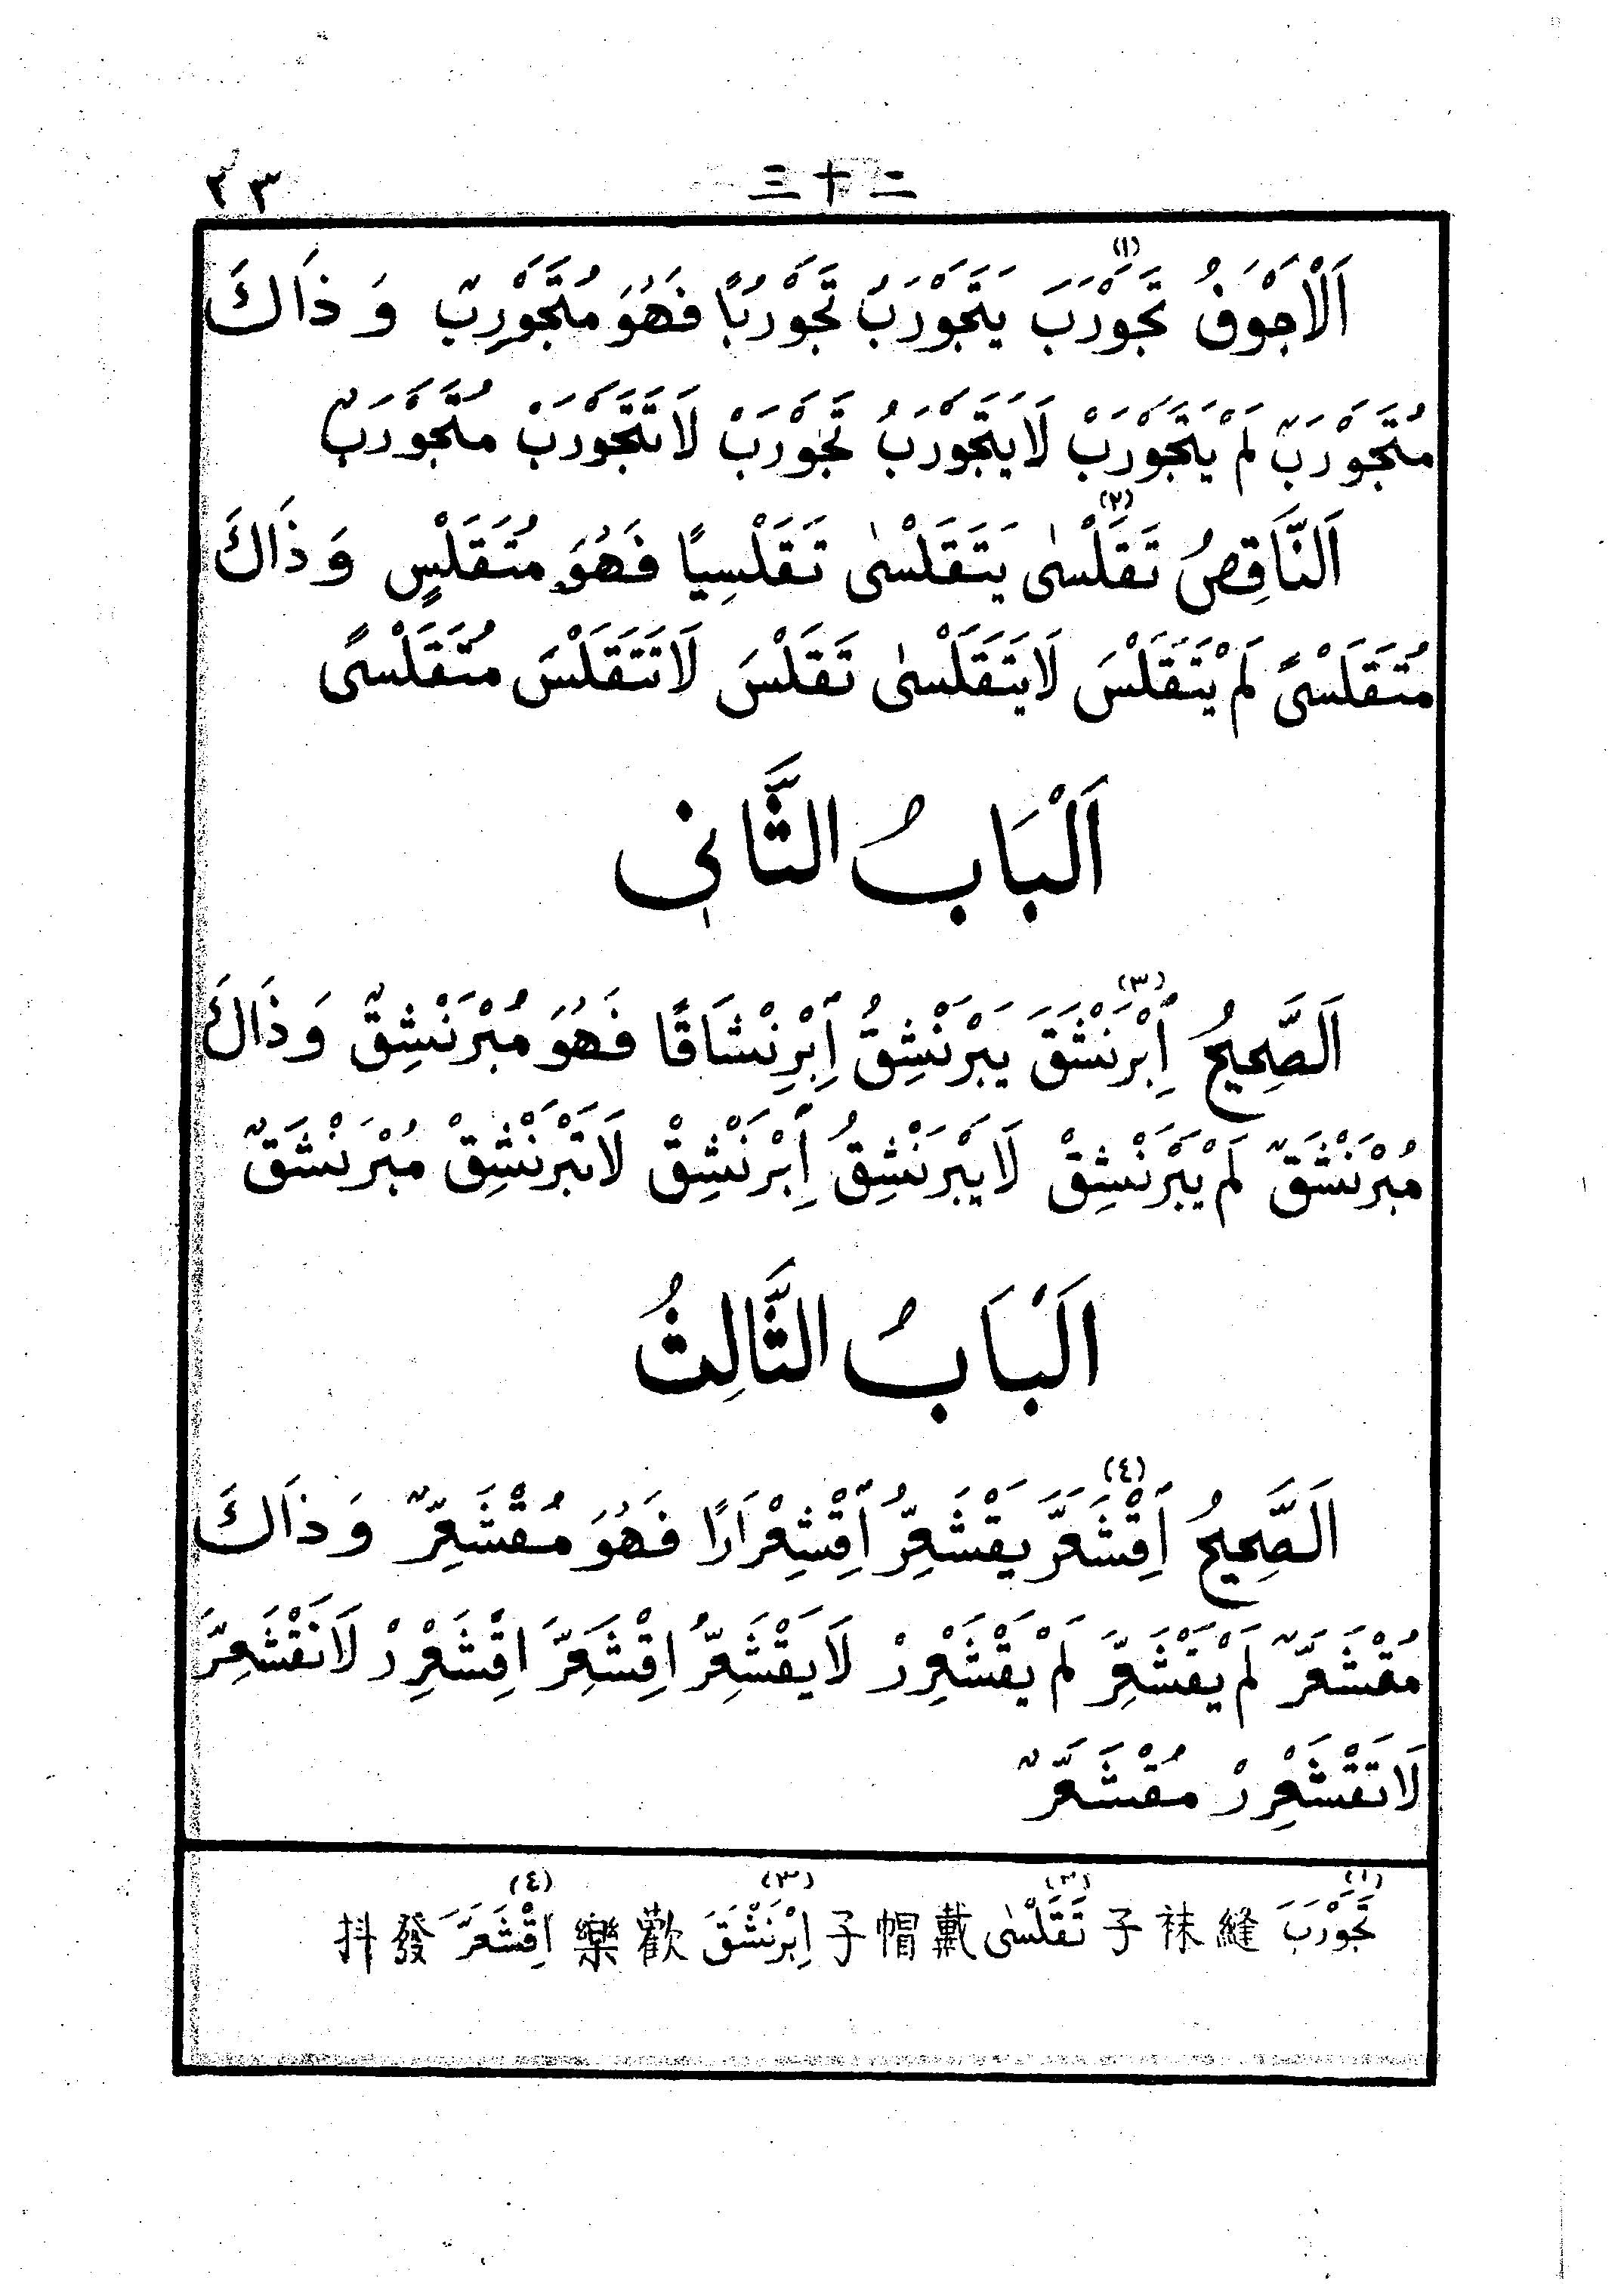 二十三 ٢٣
اَلْاَجْوَفُ تَجَوْرَبَ(١) يَتَجَوْرَبُ تَجَوْرُبًا فَهُوَ مُتَجَوْرِبٌ وَ ذَاكَ
مُتَجَوْرَبٌ لَمْ يَتَجَوْرَبْ لَايَتَجَوْرَبُ تَجَوْرَبْ لَاتَتَجَوْرَبْ مُتَجَوْرَبٌ
اَلنَّاقِصُ تَقَلْسٰى(٢) يَتَقَلْسٰى تَقَلْسِيًا فَهُوَ مُتَقَلْسٍ وَ ذَاكَ
مُتَقَلْسًى لَمْ يَتَقَلْسَ لَايَتَقَلْسٰى تَقَلْسَ لَاتَتَقَلْسَ مُتَقَلْسًى
اَلْبَابُ الثَّانِي
اَلصَّحِيحُ اِبْرَنْشَقَ(٣) يَبْرَنْشِقُ اِبْرِنْشَاقًا فَهُوَ مُبْرَنْشِقٌ وَ ذَاكَ
مُبْرَنْشَقٌ لَمْ يَبْرَنْشِقْ لَايَبْرَنْشِقُ اِبْرَنْشِقْ لَاتَبْرَنْشِقْ مُبْرَنْشَقٌ
اَلْبَابُ الثَّالِثُ
اَلصَّحِيحُ اِقْشَعَرَّ(٤) يَقْشَعِرُّ اِقْشِعْرَارًا فَهُوَ مُقْشَعِرٌّ وَ ذَاكَ
مُقْشَعَرٌّ لَمْ يَقْشَعِرَّ لَمْ يَقْشَعْرِرْ لَايَقْشَعِرُّ اِقْشَعِرَّ اِقْشَعْرِرْ لَاتَقْشَعِرَّ
لَاتَقْشَعْرِرْ مُقْشَعَرٌّ
(١) تَجَوْرَبَ 縫袜子 (٢) تَقَلْسٰى 戴帽子 (٣) اِبْرَنْشَقَ 歡樂 (٤) اِقْشَعَرَّ 發抖